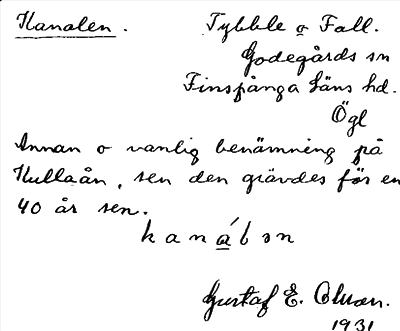 Kanalen. Tybble o Fall.
Godegårds sn
Finspånga läns hd.
Ögl
Annan o vanlig benämning på
Kullaån, sen den grävdes för en
40 år sen.
kanálǝn
Gustaf E. Olsson.
1931